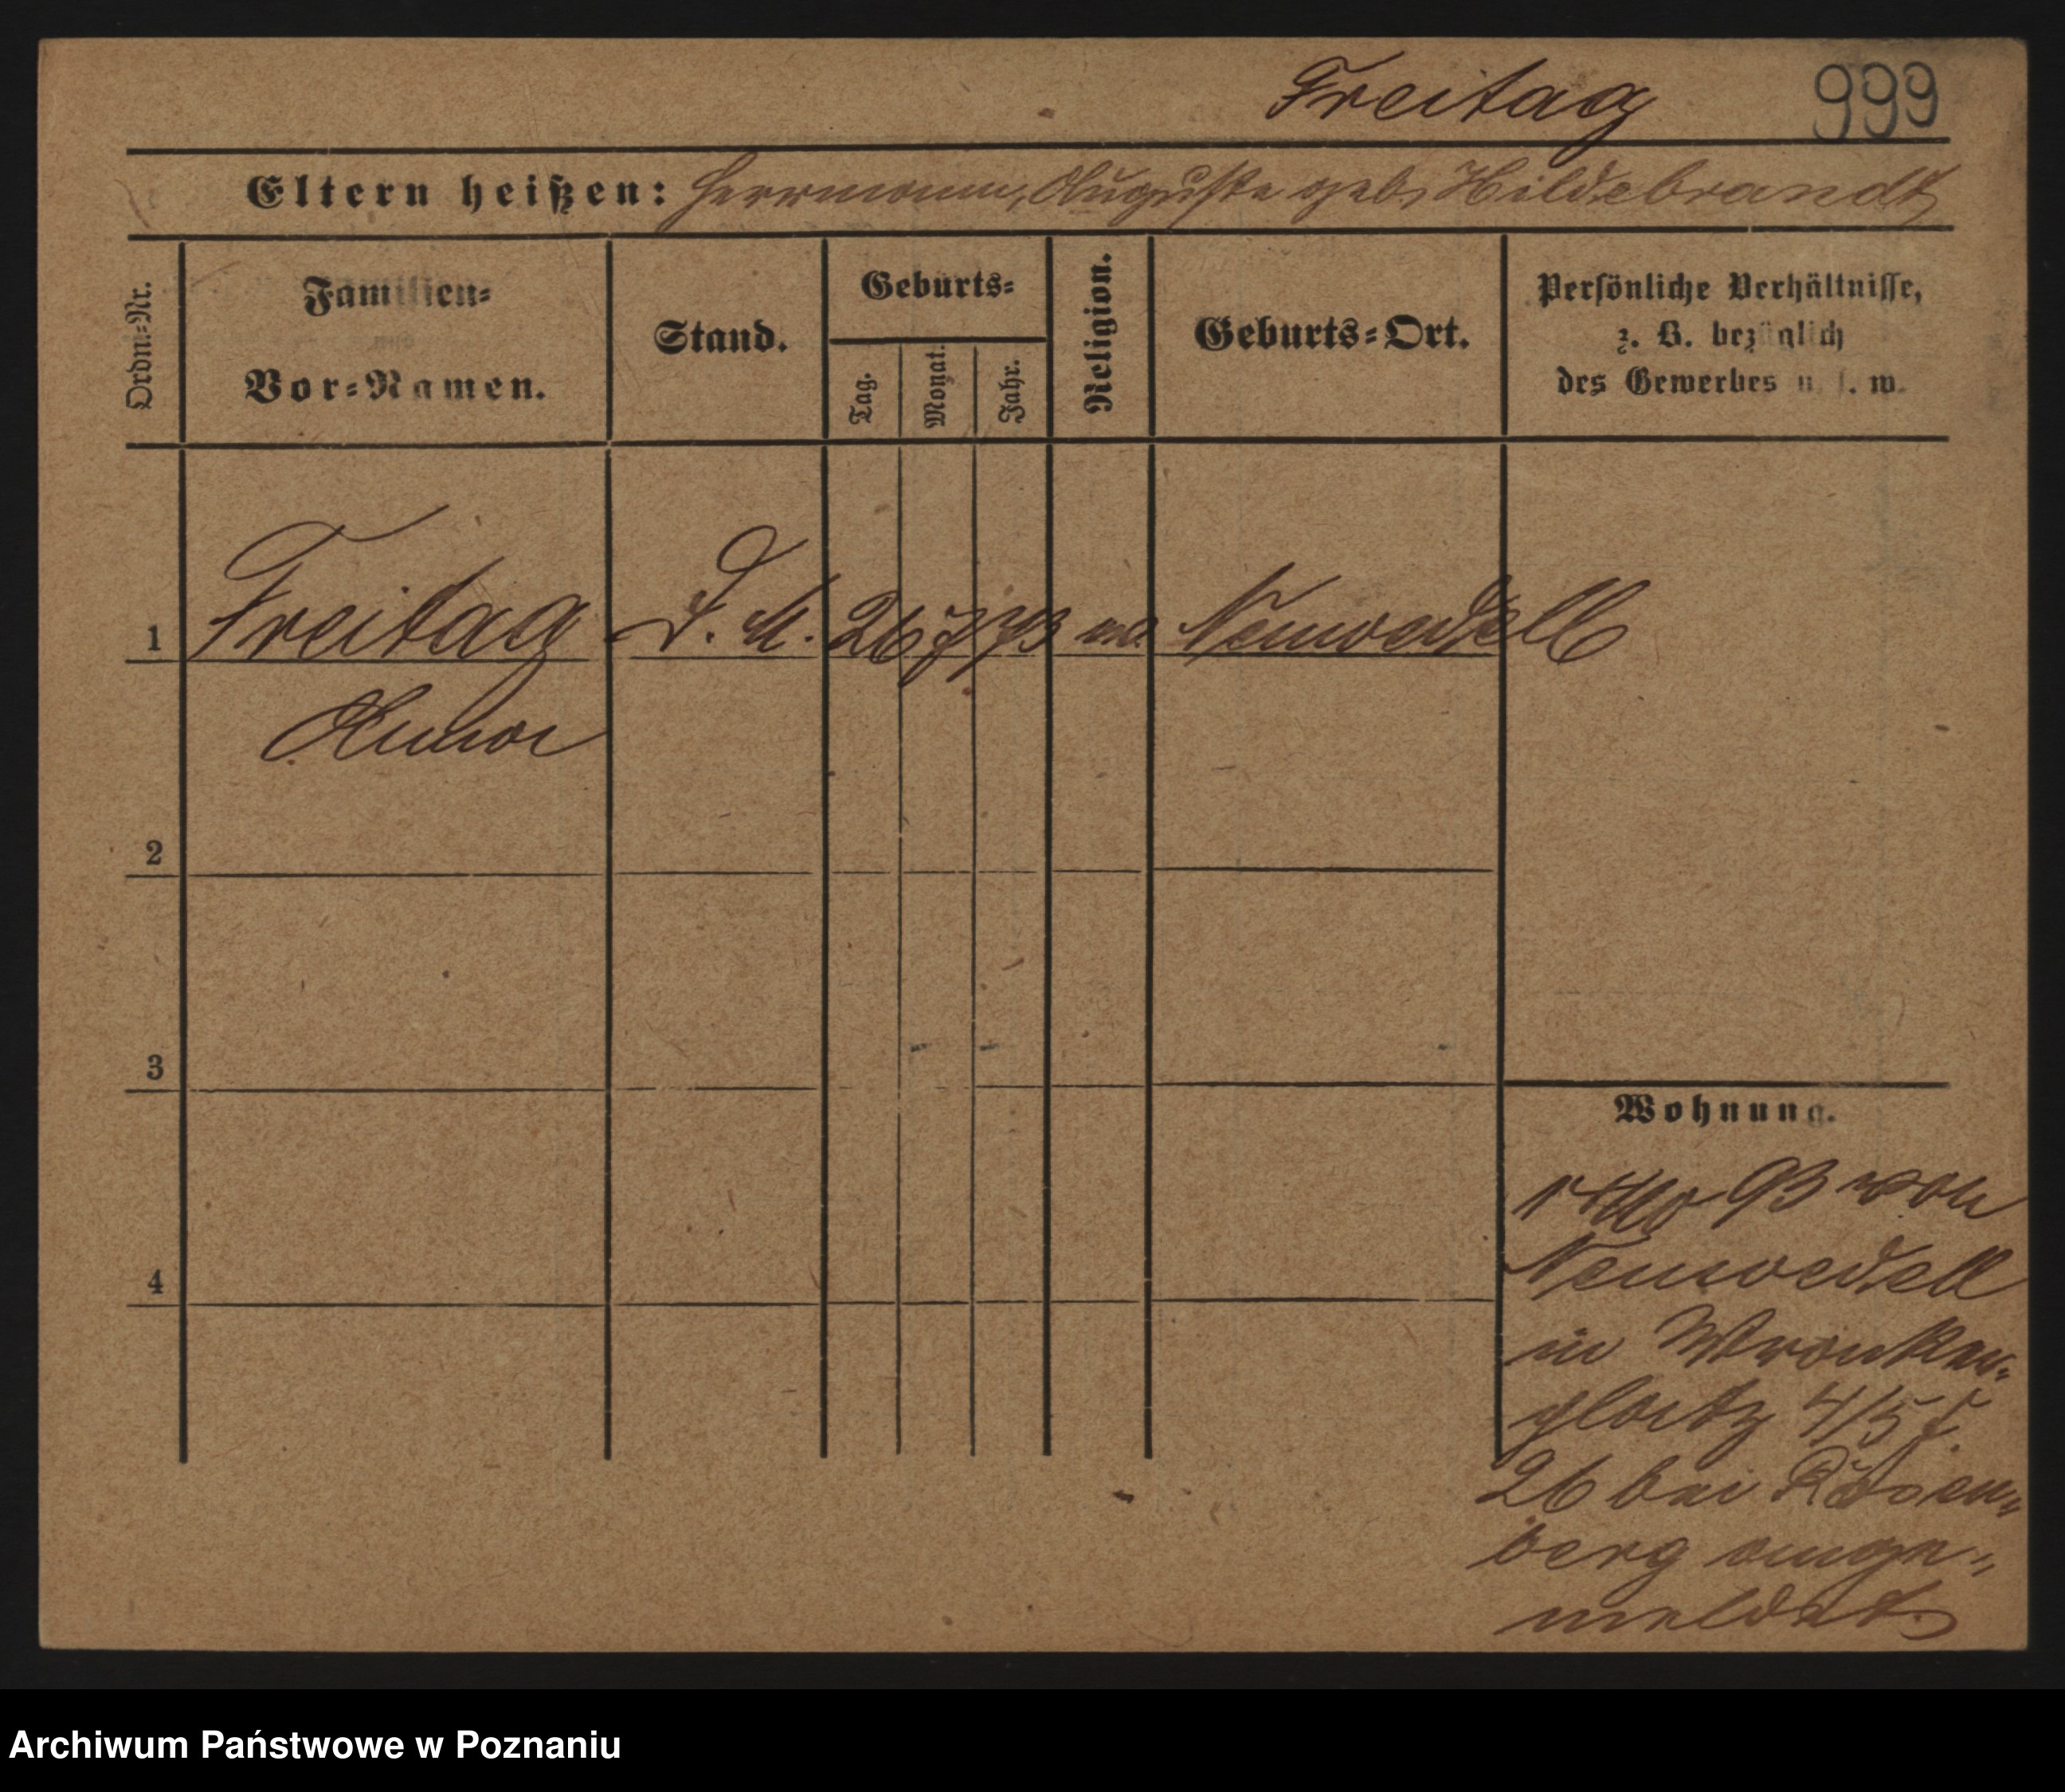 Freitag 999
Eltern heißen: Herrmann, Auguste geb. Hildebrandt
Ordn.-Nr.
Familien-
und
Vor-Namen.
Stand.
Geburts-
Tag.
Monat.
Jahr.
Religion.
Geburts-Ort.
Persönliche Verhältnisse,
z. B. bezüglich
des Gewerbes u. s. w.
1 Freitag D. M. 26 7 73 ev. Neuwedell
Anna
2
3
4
Wohnung.
93 von
Neuwedell
in Wronker-
platz 4/5 f.
26 bei Rosen-
berg ange-
meldet.
Archiwum Państwowe w Poznaniu